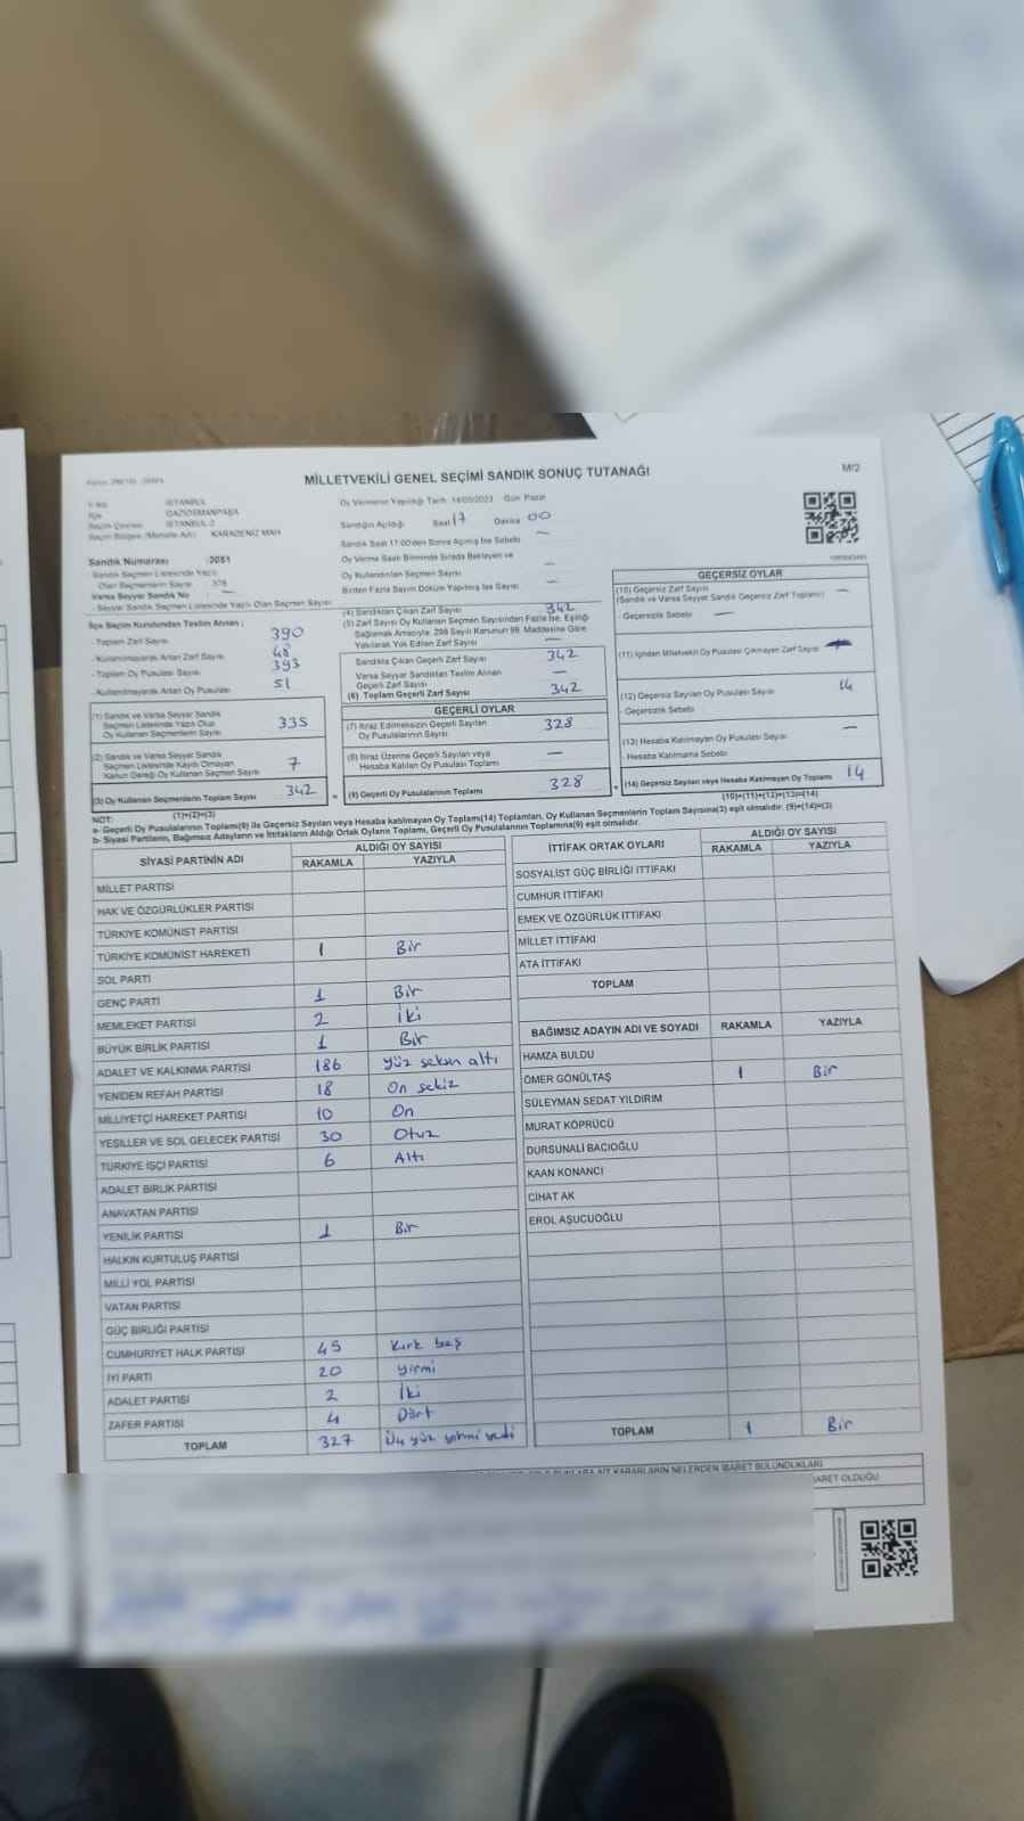 MİLLETVEKİLİ GENEL SEÇİMİ SANDIK SONUÇ TUTANAĞI
M/2
İSTANBUL
GAZİOSMANPAŞA
İSTANBUL-2
KARADENİZ MAH
Oy Vermenin Yapıldığı Tarih 14/05/2023 Gün Pazar
Sandığın Açıldığı Saat 17 Dakika 00
Sandık Saat 17:00'den Sonra Açılmış İse Sebebi —
Oy Verme Saati Bitiminde Sırada Bekleyen ve
Oy Kullandırılan Seçmen Sayısı —
Birden Fazla Sayım Döküm Yapılmış İse Sayısı —
Sandık Numarası
Sandık Seçmen Listesinde Yazılı
Olan Seçmenlerin Sayısı
Varsa Seyyar Sandık No —
Seyyar Sandık Seçmen Listesinde Yazılı Olan Seçmen Sayısı
İlçe Seçim Kurulundan Teslim Alınan ;
- Toplam Zarf Sayısı 390
- Kullanılmayarak Artan Zarf Sayısı 48
- Toplam Oy Pusulası Sayısı 393
- Kullanılmayarak Artan Oy Pusulası 51
(1) Sandık ve Varsa Seyyar Sandık
Seçmen Listesinde Yazılı Olup
Oy Kullanan Seçmenlerin Sayısı 335
(2) Sandık ve Varsa Seyyar Sandık
Seçmen Listesinde Kaydı Olmayan
Kanun Gereği Oy Kullanan Seçmen Sayısı 7
(3) Oy Kullanan Seçmenlerin Toplam Sayısı 342
(1)+(2)=(3)
(4) Sandıktan Çıkan Zarf Sayısı 342
(5) Zarf Sayısı Oy Kullanan Seçmen Sayısından Fazla İse, Eşitliği
Sağlamak Amacıyla, 298 Sayılı Kanunun 98. Maddesine Göre
Yakılarak Yok Edilen Zarf Sayısı —
Sandıkta Çıkan Geçerli Zarf Sayısı 342
Varsa Seyyar Sandıktan Teslim Alınan
Geçerli Zarf Sayısı —
(6) Toplam Geçerli Zarf Sayısı 342
GEÇERLİ OYLAR
(7) İtiraz Edilmeksizin Geçerli Sayılan
Oy Pusulalarının Sayısı 328
(8) İtiraz Üzerine Geçerli Sayılan veya
Hesaba Katılan Oy Pusulası Toplamı —
= (9) Geçerli Oy Pusulalarının Toplamı 328
GEÇERSİZ OYLAR
(10) Geçersiz Zarf Sayısı
(Sandık ve Varsa Seyyar Sandık Geçersiz Zarf Toplamı) —
- Geçersizlik Sebebi —
(11) İçinden Milletvekili Oy Pusulası Çıkmayan Zarf Sayısı
(12) Geçersiz Sayılan Oy Pusulası Sayısı 14
- Geçersizlik Sebebi
(13) Hesaba Katılmayan Oy Pusulası Sayısı —
- Hesaba Katılmama Sebebi
+ (14) Geçersiz Sayılan veya Hesaba Katılmayan Oy Toplamı 14
(10)+(11)+(12)+(13)=(14)
NOT:
a- Geçerli Oy Pusulalarının Toplamı(9) ile Geçersiz Sayılan veya Hesaba katılmayan Oy Toplamı(14) Toplamları, Oy Kullanan Seçmenlerin Toplam Sayısına(3) eşit olmalıdır. (9)+(14)=(3)
b- Siyasi Partilerin, Bağımsız Adayların ve İttifakların Aldığı Ortak Oyların Toplamı, Geçerli Oy Pusulalarının Toplamına(9) eşit olmalıdır.
SİYASİ PARTİNİN ADI
ALDIĞI OY SAYISI
RAKAMLA YAZIYLA
MİLLET PARTİSİ
HAK VE ÖZGÜRLÜKLER PARTİSİ
TÜRKİYE KOMÜNİST PARTİSİ
TÜRKİYE KOMÜNİST HAREKETİ 1 Bir
SOL PARTİ
GENÇ PARTİ 1 Bir
MEMLEKET PARTİSİ 2 İki
BÜYÜK BİRLİK PARTİSİ 1 Bir
ADALET VE KALKINMA PARTİSİ 186 yüz seksen altı
YENİDEN REFAH PARTİSİ 18 On sekiz
MİLLİYETÇİ HAREKET PARTİSİ 10 On
YEŞİLLER VE SOL GELECEK PARTİSİ 30 Otuz
TÜRKİYE İŞÇİ PARTİSİ 6 Altı
ADALET BİRLİK PARTİSİ
ANAVATAN PARTİSİ
YENİLİK PARTİSİ 1 Bir
HALKIN KURTULUŞ PARTİSİ
MİLLİ YOL PARTİSİ
VATAN PARTİSİ
GÜÇ BİRLİĞİ PARTİSİ
CUMHURİYET HALK PARTİSİ 45 Kırk beş
İYİ PARTİ 20 yirmi
ADALET PARTİSİ 2 İki
ZAFER PARTİSİ 4 Dört
TOPLAM 327 Üç yüz yirmi yedi
İTTİFAK ORTAK OYLARI
ALDIĞI OY SAYISI
RAKAMLA YAZIYLA
SOSYALİST GÜÇ BİRLİĞİ İTTİFAKI
CUMHUR İTTİFAKI
EMEK VE ÖZGÜRLÜK İTTİFAKI
MİLLET İTTİFAKI
ATA İTTİFAKI
TOPLAM
BAĞIMSIZ ADAYIN ADI VE SOYADI RAKAMLA YAZIYLA
HAMZA BULDU
ÖMER GÖNÜLTAŞ 1 Bir
SÜLEYMAN SEDAT YILDIRIM
MURAT KÖPRÜCÜ
DURSUNALİ BACIOĞLU
KAAN KONANCI
CİHAT AK
EROL AŞUCUOĞLU
TOPLAM 1 Bir
KARARLARIN NELERDEN İBARET BULUNDUKLARI
İBARET OLDUĞU